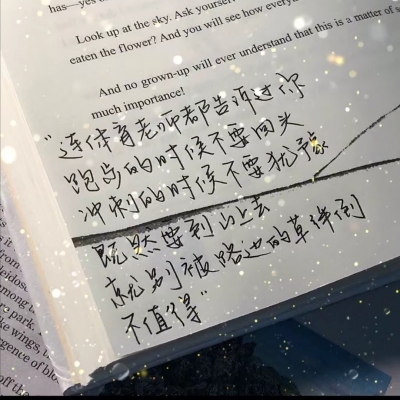 has—yes
Look up at the sky. Ask yourself
eaten the flower? And you will see how everyth
And no grown-up will ever understand that this is a matter of s
much importance!
"连体育老师都告诉过你
跑步的时候不要回头
冲刺的时候不要犹豫
既然要到山上去
就别被路边的草绊倒
不值得"
it
from
among
park.
ke wings, t
ergence of blo
off th